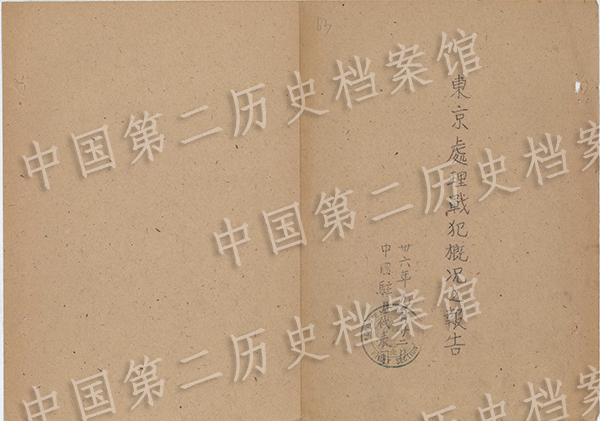 東京處理戰犯概况之報告
卅六年
中國駐日代表團
63
中国第二历史档案馆
中国第二历史档案馆
中国第二历史档案馆
中国第二历史档案馆